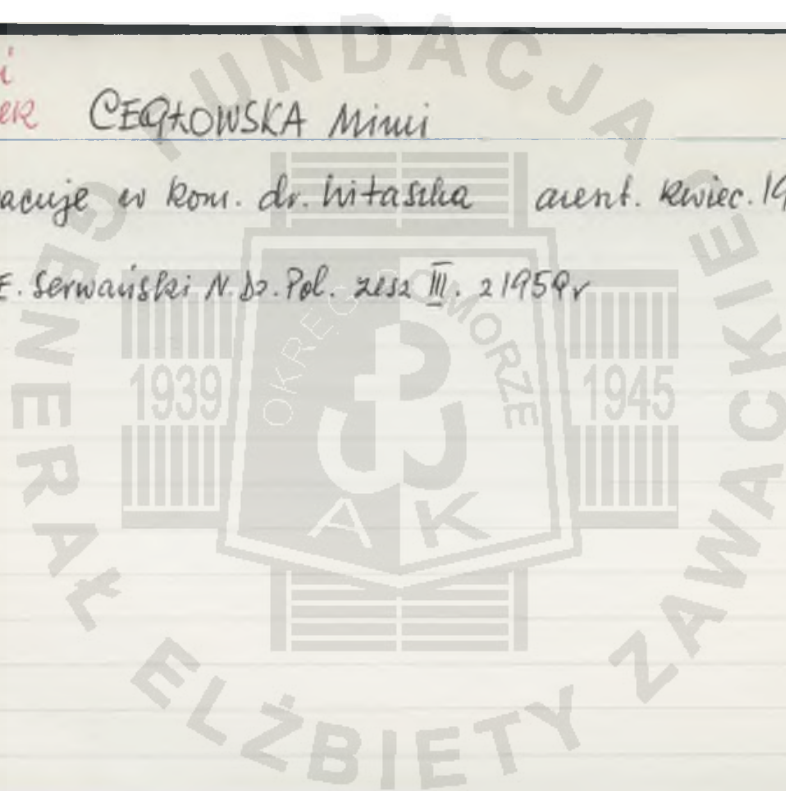 i
CEGŁOWSKA Mimi
acuje w kom. dr. Witaszka arent. kwiec. 19
E. Serwański N. Dz. Pol. zesz III. z 1959r
FUNDACJA GENERAŁ ELŻBIETY ZAWACKIEJ
OKRĘG POMORZE
1939 1945
AK